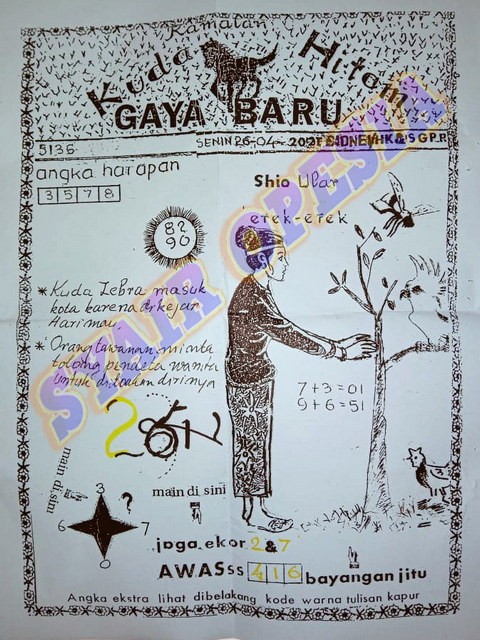 Ramalan
Kuda Hitam
GAYA BARU
5136
SENIN 26-04-2021 SIDNEY/HK & SGP.R
angka harapan
3 5 7 8
Shio Ular
erek-erek
8?
90
SYAIR OPESIA
* Kuda Zebra masuk
kota karena dikejar
Harimau
* Orang tawanan minta
tolong pendeta wanita
untuk didoakan dirinya
7+3=01
9+6=51
main di sini
3
?
6
7
0
main di sini
jaga ekor 2&7
AWASss 416 bayangan jitu
Angka ekstra lihat dibelakang kode warna tulisan kapur